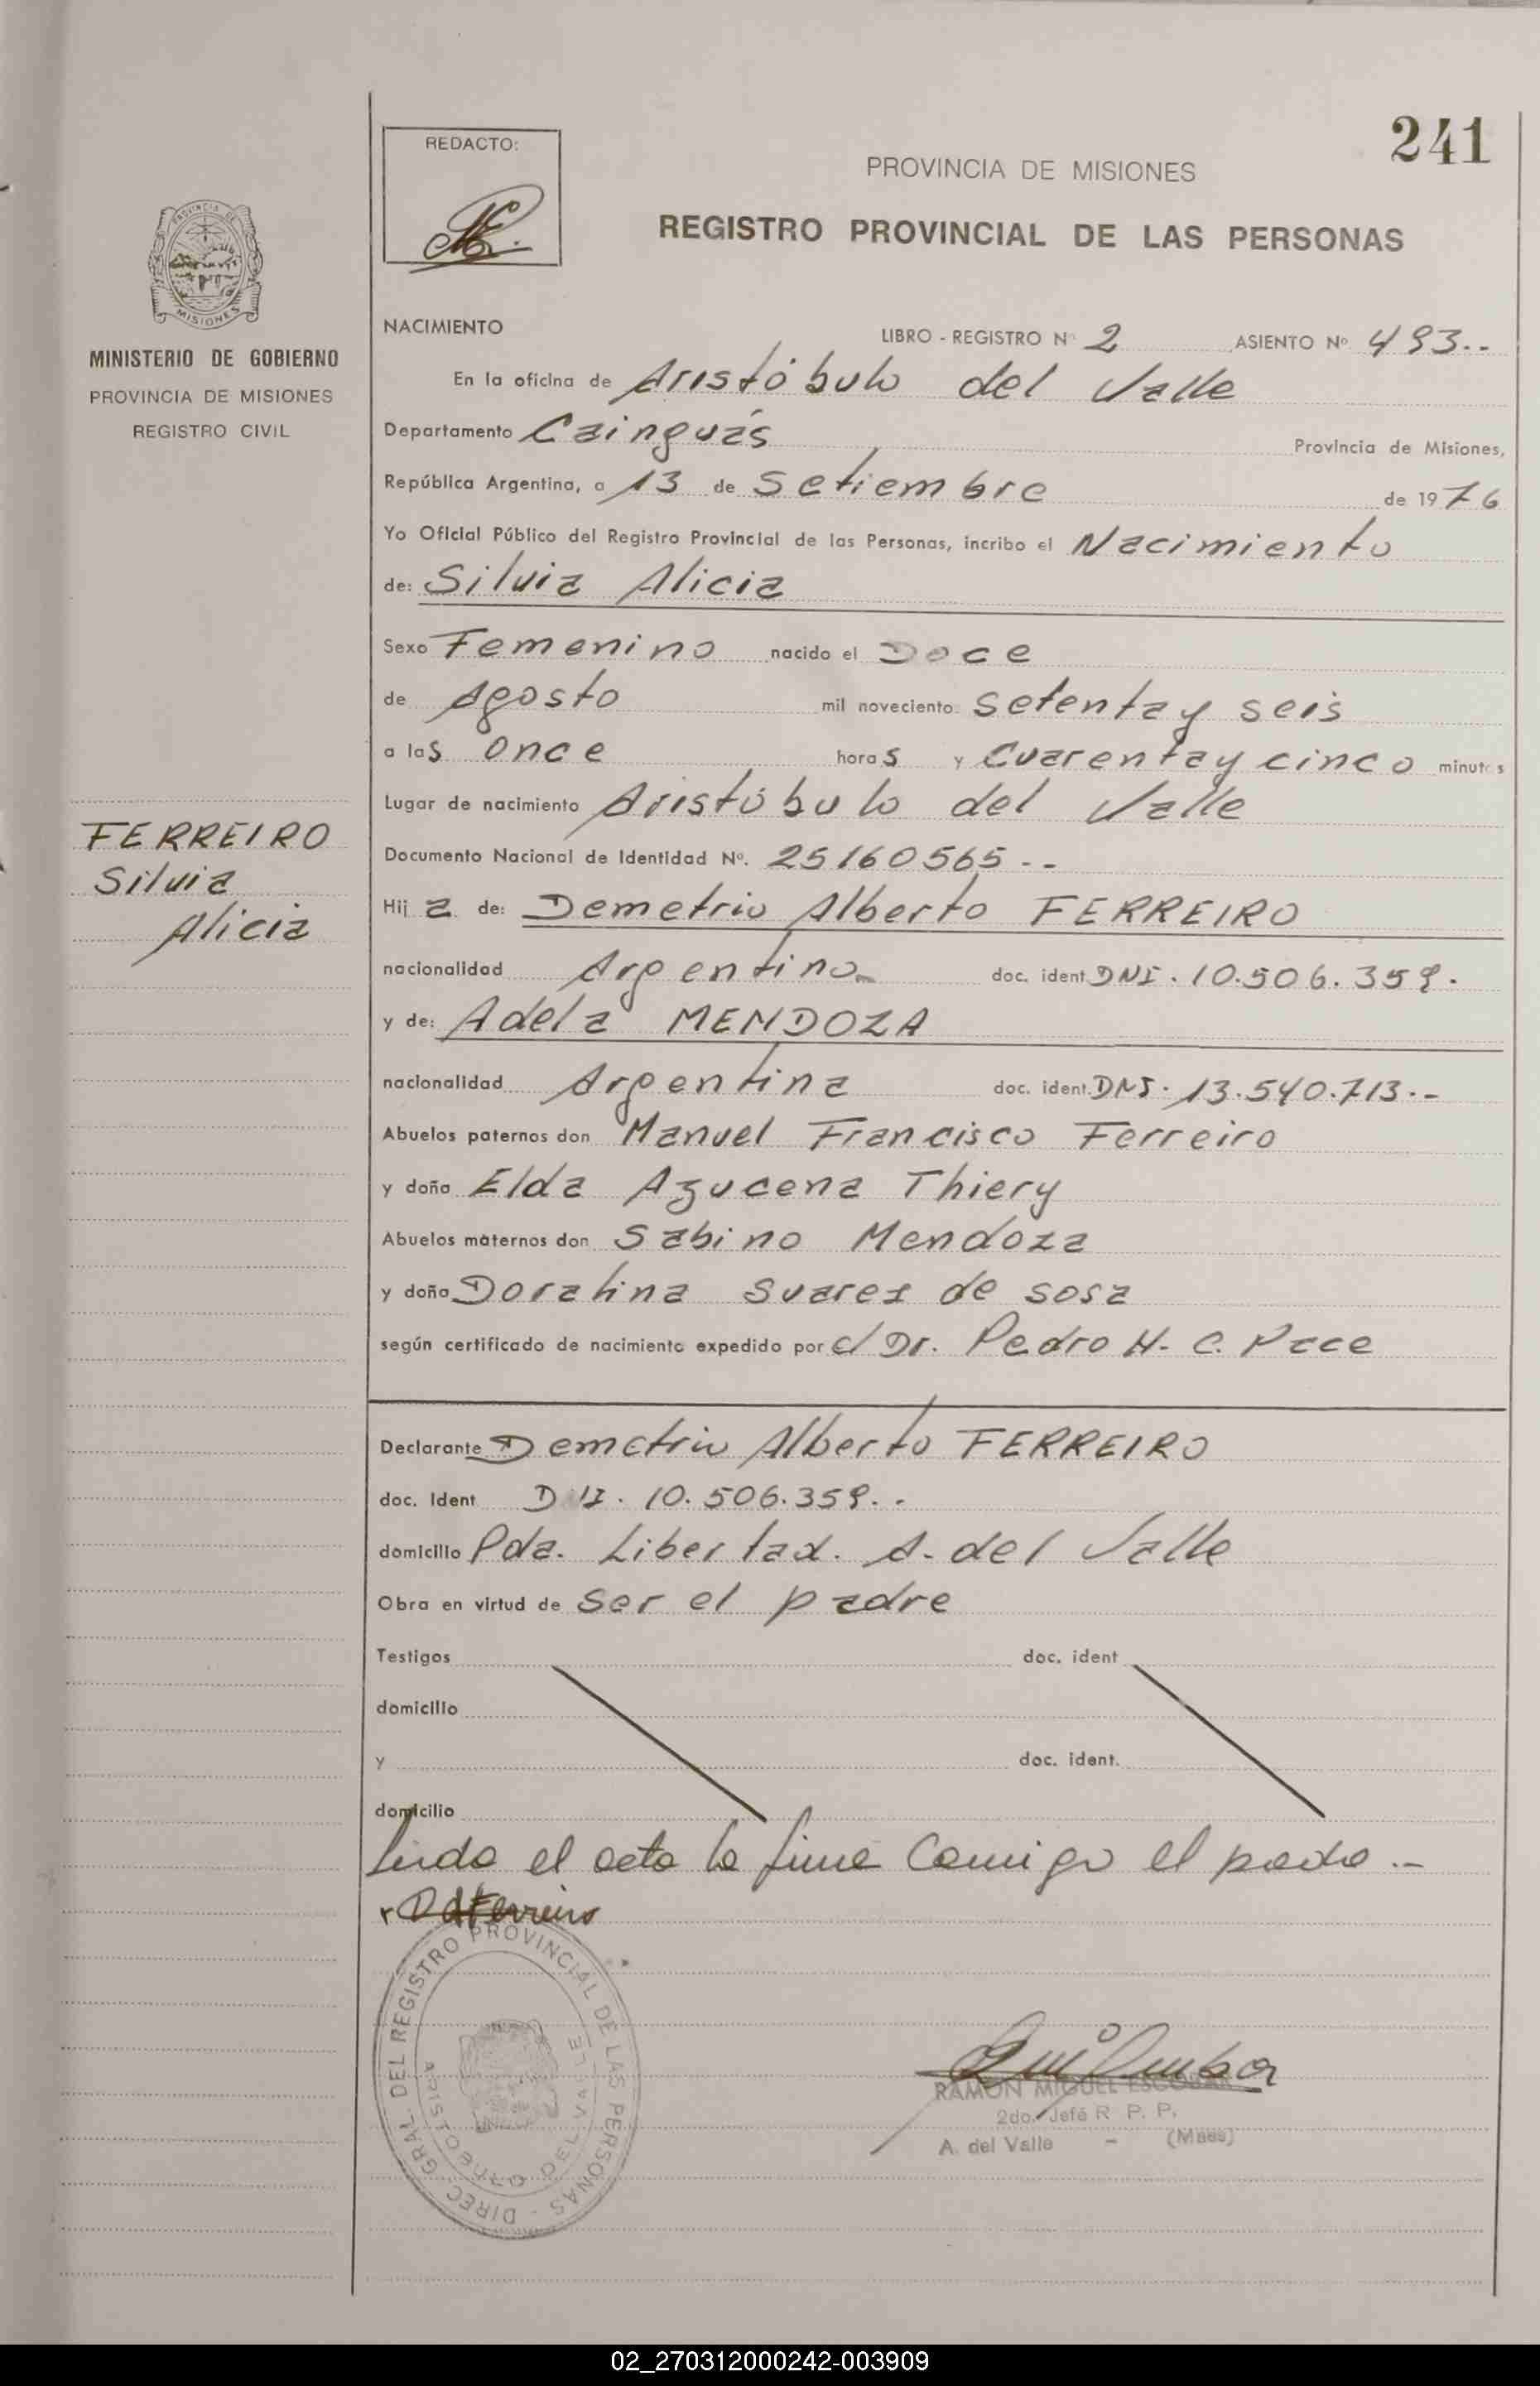 241
REDACTO:
PROVINCIA DE MISIONES
REGISTRO PROVINCIAL DE LAS PERSONAS
PROVINCIA DE
MISIONES
MINISTERIO DE GOBIERNO
PROVINCIA DE MISIONES
REGISTRO CIVIL
FERREIRO
Silvia
Alicia
NACIMIENTO LIBRO - REGISTRO Nº 2 ASIENTO Nº 493.--
En la oficina de Aristóbulo del Valle
Departamento Cainguás Provincia de Misiones,
República Argentina, a 13 de Setiembre de 1976
Yo Oficial Público del Registro Provincial de las Personas, incribo el Nacimiento
de: Silvia Alicia
Sexo Femenino nacido el Doce
de Agosto mil noveciento setenta y seis
a las Once horas y Cuarenta y cinco minutos
Lugar de nacimiento Aristóbulo del Valle
Documento Nacional de Identidad Nº. 25160565.--
Hij a de: Demetrio Alberto FERREIRO
nacionalidad Argentino doc. ident DNI. 10.506.359.
y de: Adela MENDOZA
nacionalidad Argentina doc. ident. DNI. 13.540.713.--
Abuelos paternos don Manuel Francisco Ferreiro
y doña Elda Azucena Thiery
Abuelos maternos don Sabino Mendoza
y doña Doralina Suarez de Sosa
según certificado de nacimiento expedido por el Dr. Pedro H. C. Pace
Declarante Demetrio Alberto FERREIRO
doc. Ident DNI. 10.506.359..
domicilio Pda. Libertad. A. del Valle
Obra en virtud de ser el padre
Testigos doc. ident
domicilio
y doc. ident.
domicilio
Leida el acta la firma Conmigo el padre.--
DAFerreiro
DIREC. GRAL. DEL REGISTRO PROVINCIAL DE LAS PERSONAS -
ARISTOBULO DEL VALLE
RAMON MIGUEL ESCOBAR
2do. Jefe R. P. P.
A. del Valle - (Mnes)
02_270312000242-003909